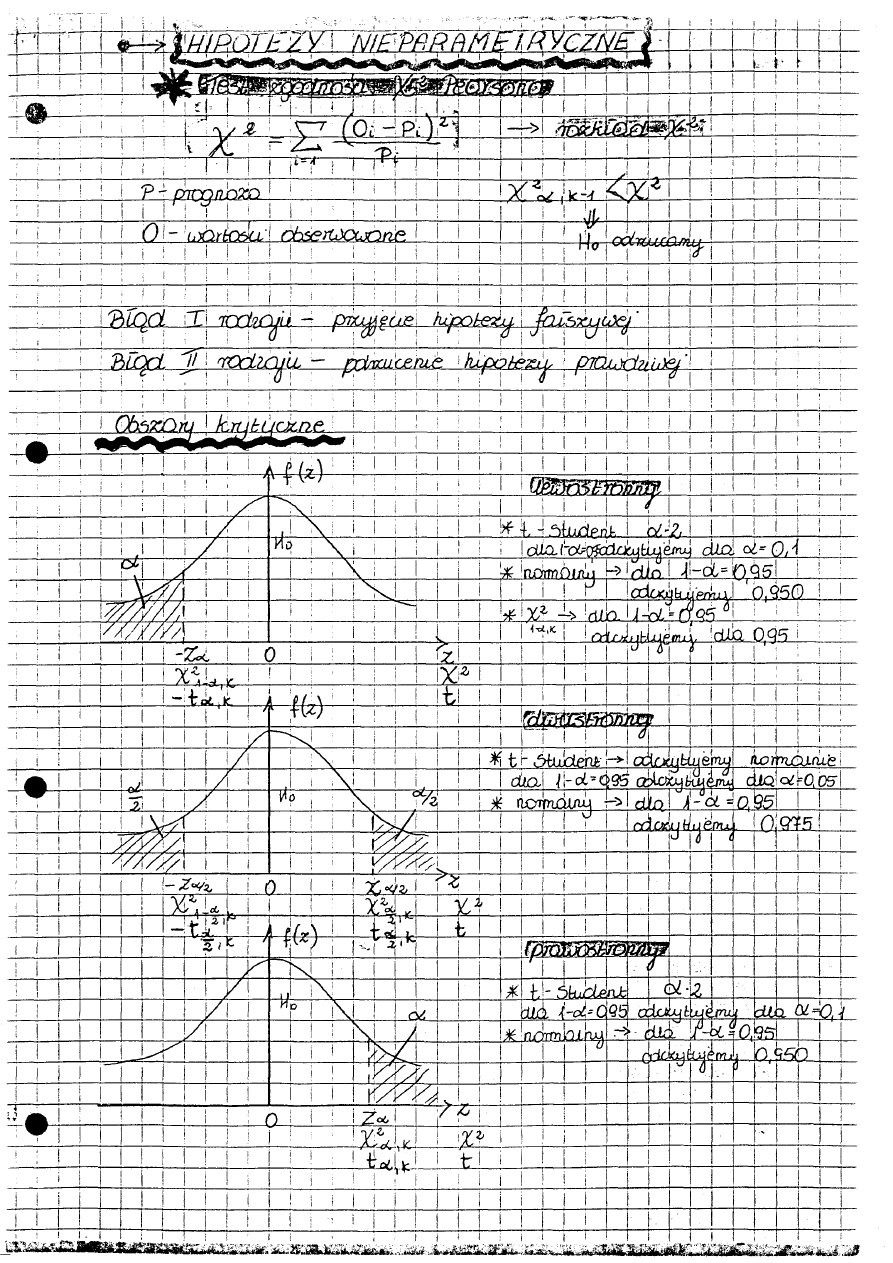 HIPOTEZY NIEPARAMETRYCZNE
Test zgodności χ² Pearsona
χ² = ∑ i=1 (Oi − Pi)² / Pi → rozkład χ²
P - prognoza
χ²α,k-1 < χ²
⇓
O - wartości obserwowane
H₀ odrzucamy
Błąd I rodzaju - przyjęcie hipotezy fałszywej
Błąd II rodzaju - odrzucenie hipotezy prawdziwej
Obszary krytyczne
f(z)
H₀
α
-Zα 0 z
χ²1-α,k χ²
-tα,k t
lewostronny
* t - Student α·2
dla 1-α=0,95 odczytujemy dla α=0,1
* normalny → dla 1-α=0,95
odczytujemy 0,950
* χ²1-α,k → dla 1-α=0,95
odczytujemy dla 0,95
f(z)
H₀
α/2 α/2
-Zα/2 0 Zα/2 z
χ²1-α/2,k χ²α/2,k χ²
-tα/2,k tα/2,k t
dwustronny
* t - Student → odczytujemy normalnie
dla 1-α=0,95 odczytujemy dla α=0,05
* normalny → dla 1-α=0,95
odczytujemy 0,975
f(z)
H₀
α
0 Zα z
χ²α,k χ²
tα,k t
prawostronny
* t - Student α·2
dla 1-α=0,95 odczytujemy dla α=0,1
* normalny → dla 1-α=0,95
odczytujemy 0,950